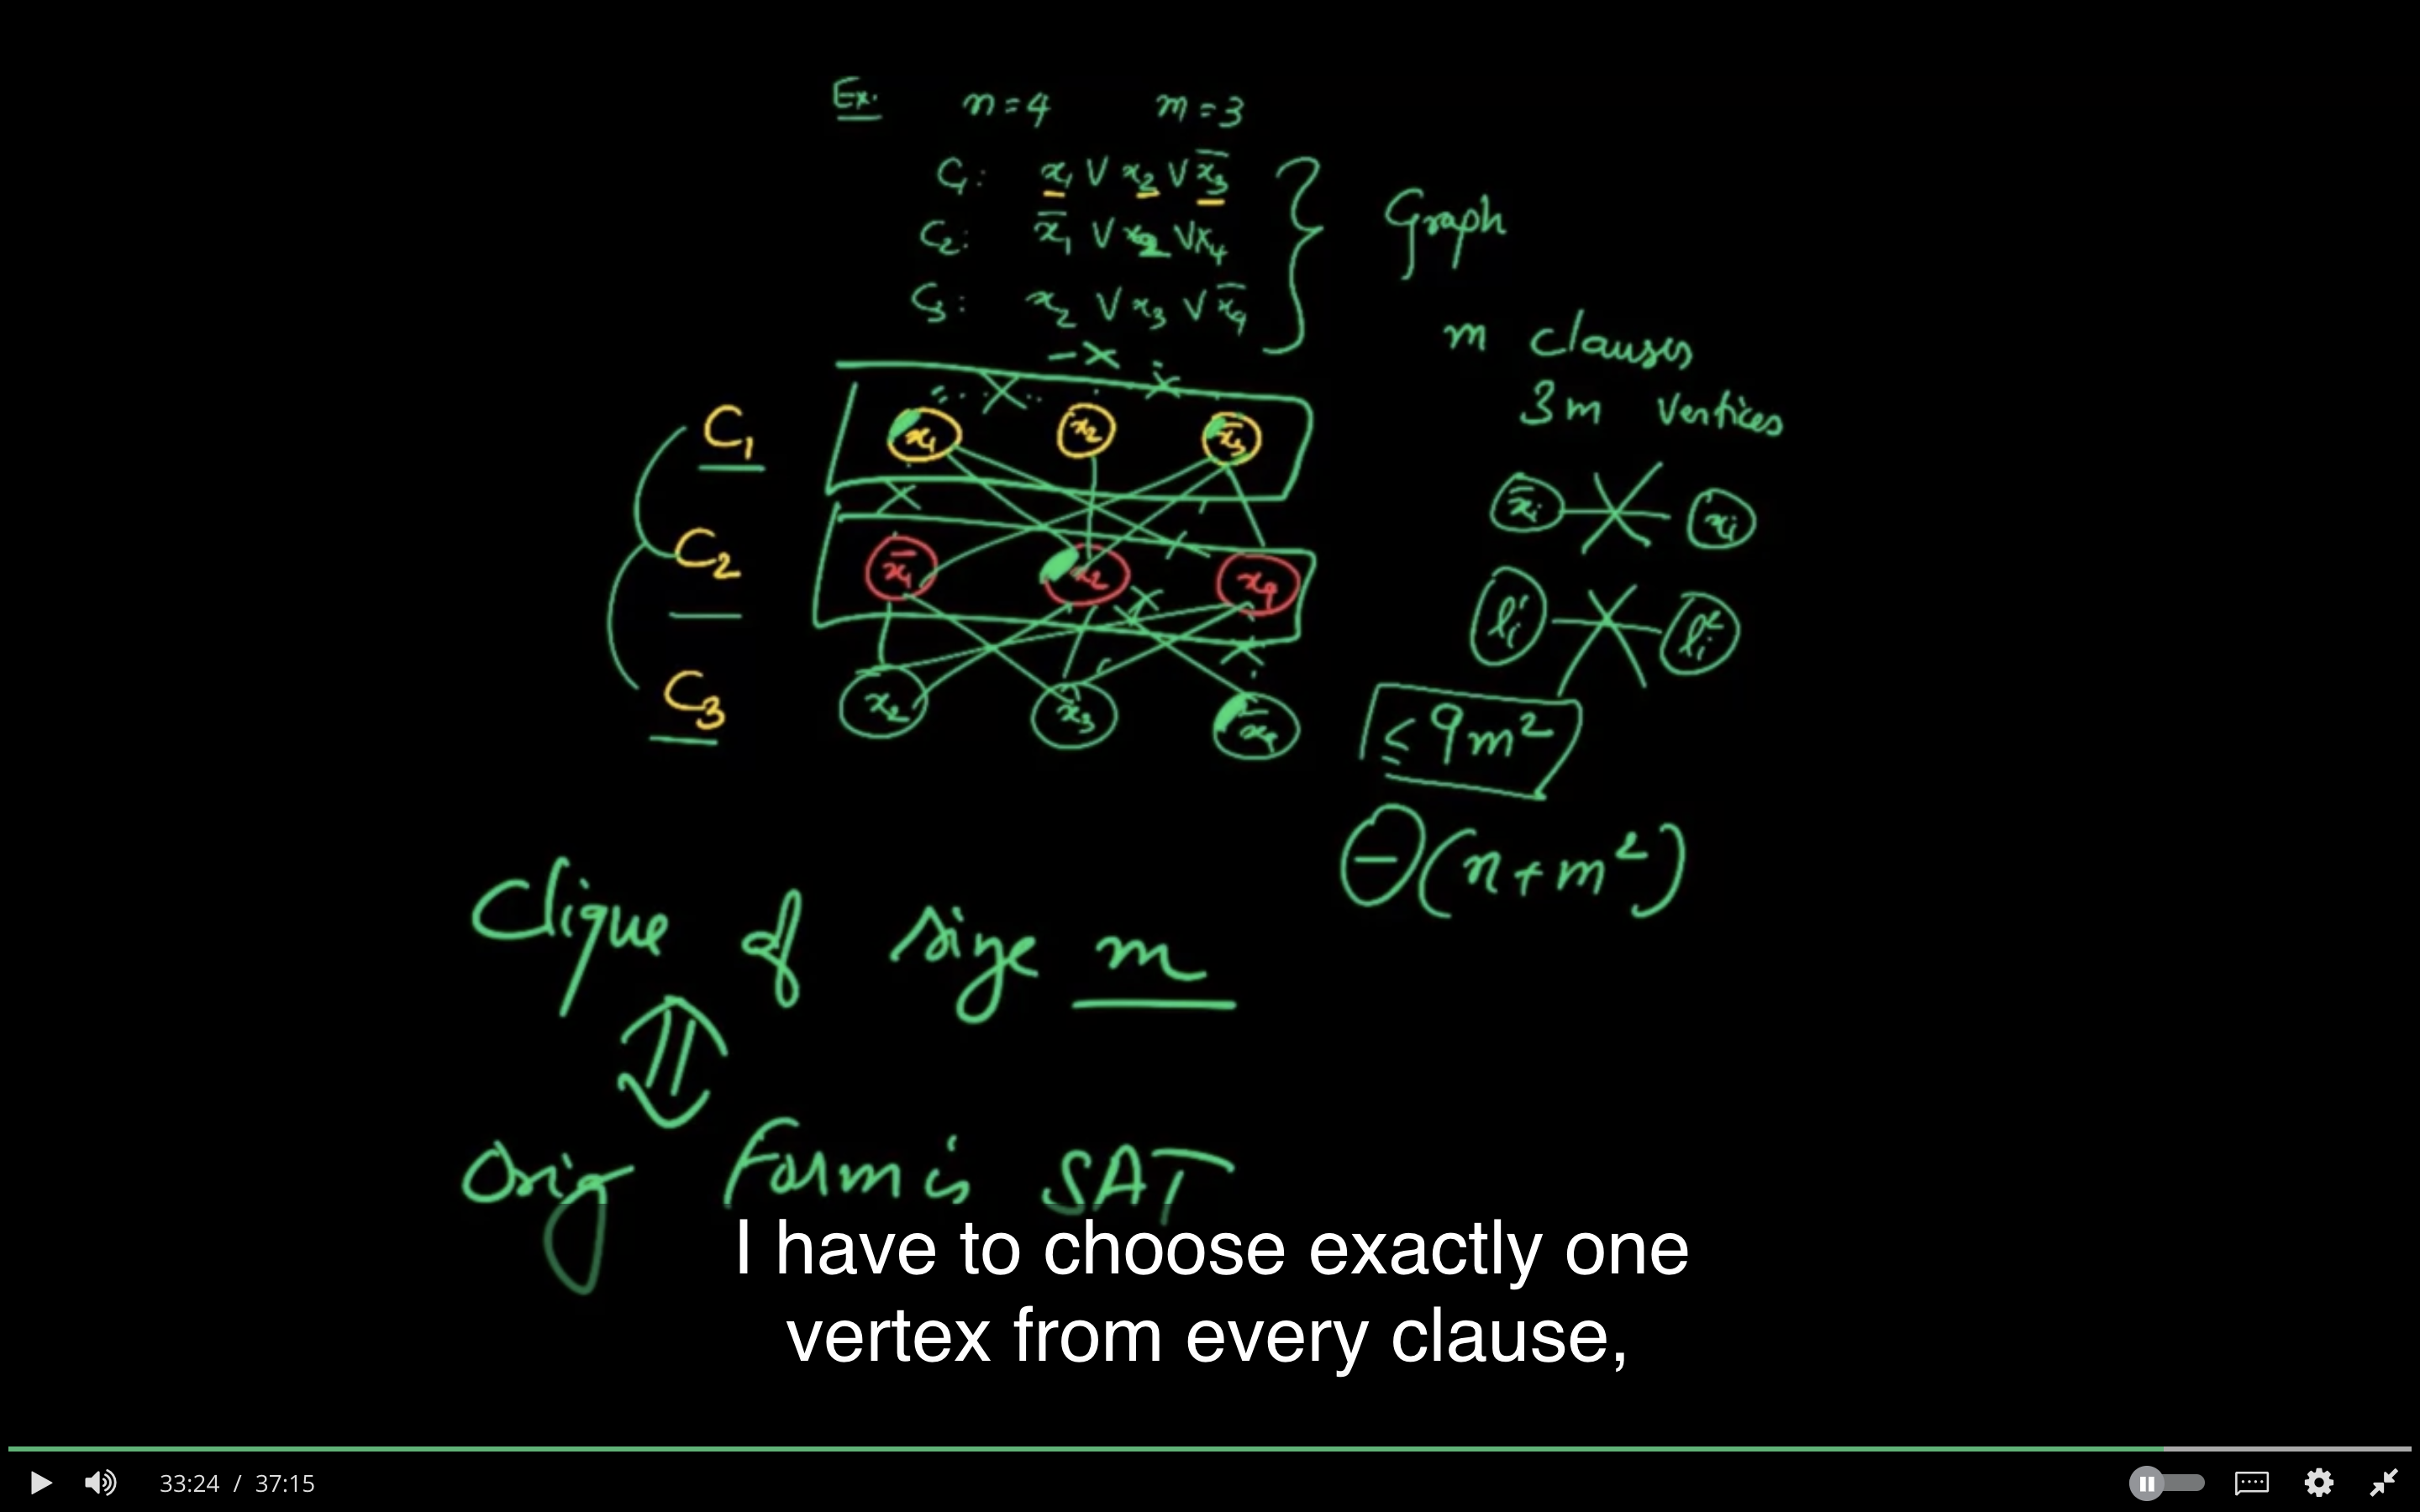 Ex. n=4 m=3
C₁: x₁ ∨ x₂ ∨ x̄₃
C₂: x̄₁ ∨ x₂ ∨ x₄
C₃: x₂ ∨ x₃ ∨ x̄₄
Graph
m clauses
3m vertices
C₁ x₁ x₂ x̄₃
x̄ᵢ xᵢ
C₂ x̄₁ x₂ x₄
C₃ x₂ x₃ x̄₄
≤ 9m²
Θ(n+m²)
Clique of size m
Orig Form is SAT
I have to choose exactly one
vertex from every clause,
33:24 / 37:15